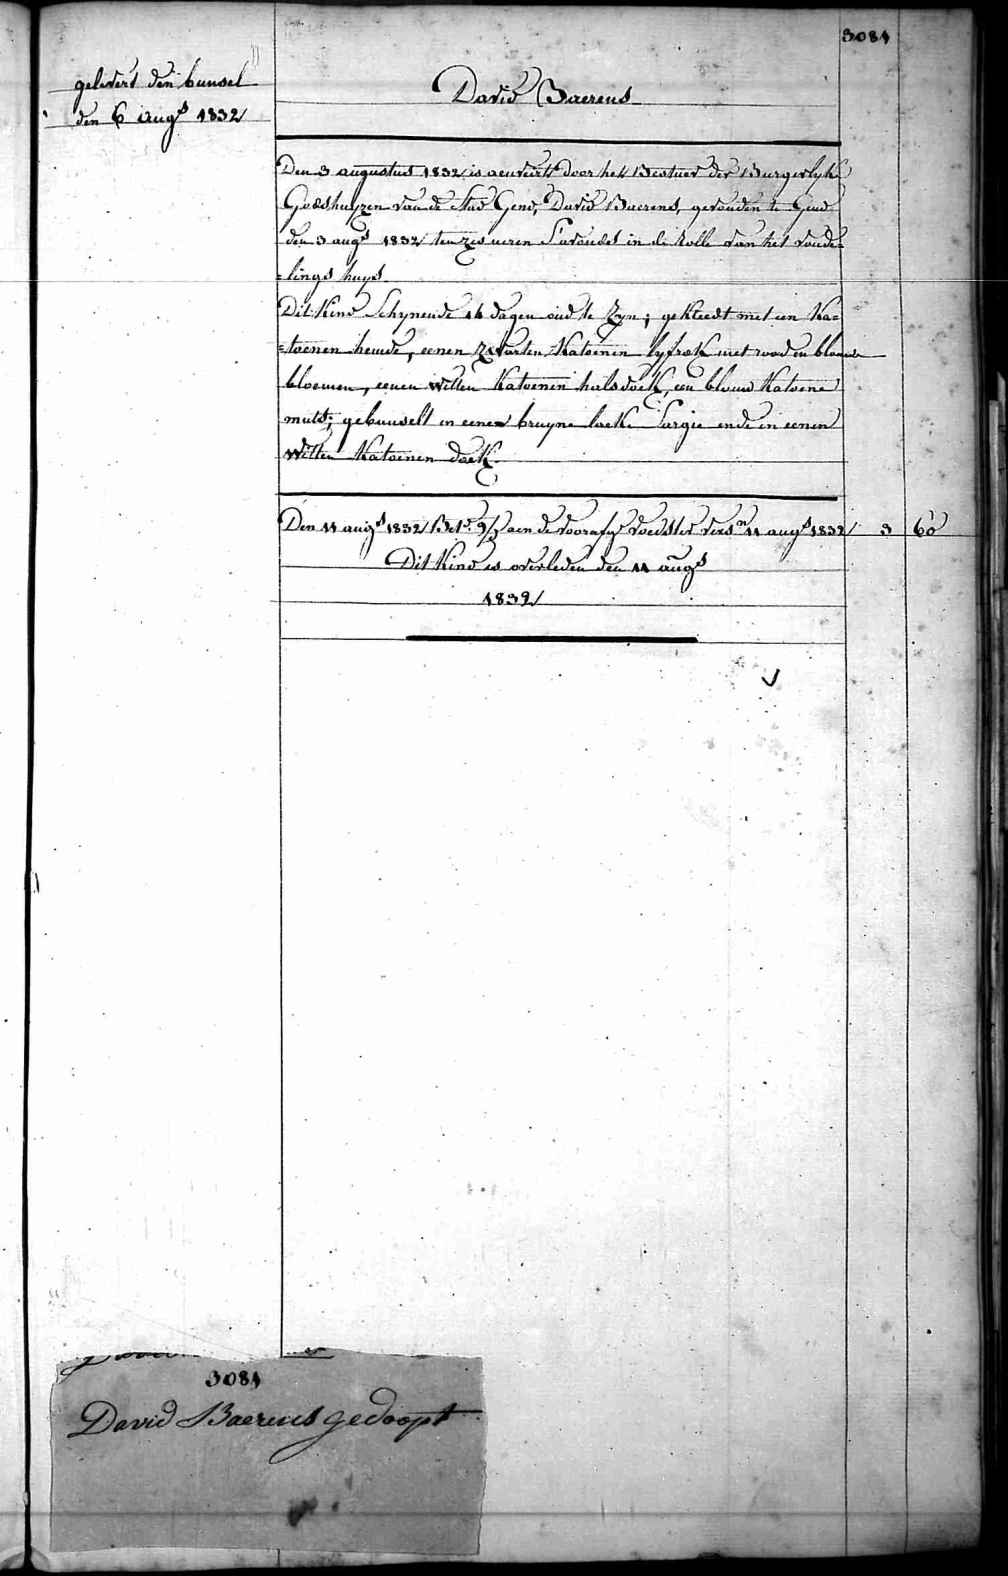 3084
gelevert den bunsel
den 6 augs 1832
David Baerens
Den 3 augustus 1832 is aenveirt door het Bestuer der Burgerlyke
Godshuyzen van de Stad Gend, David Baerens, gevonden te Gend
den 3 augs 1832 ten zes ueren S'avonds in de rolle van het vonde=
=lings huys.
Dit Kind Schynende 14 dagen oud te Zyn; gekleedt met een Ka=
=toenen hemde, eenen Zwarten Katoenen lyfrok met rood en blauwe
bloemen, eenen witten Katoenen halsdoek, een blauw Katoene
muts; gebunselt in eenen bruyne laeke Sargie ende in eenen
witten Katoenen doek.
Den 11 augs 1832 Bet. aen de voedster 11 augs 1832 3 60
Dit Kind is overleden den 11 augs
1832
3084
David Baerens gedoopt